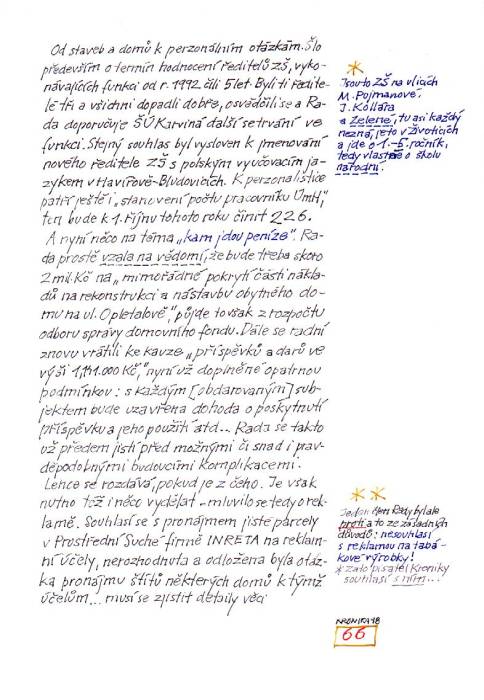 Od staveb a domů k perzonálním otázkám. Šlo
především o termín hodnocení ředitelů ZŠ, vyko-
návajících funkci od r. 1992 čili 5 let. Byli ti ředite-
lé tři a všichni dopadli dobře, osvědčili se a Ra-
da doporučuje ŠÚ Karviná další setrvání ve
funkci. Stejný souhlas byl vysloven k jmenování
nového ředitele ZŠ s polským vyučovacím ja-
zykem v Havířově-Bludovicích. K perzonalistice
patří ještě i „stanovení počtu pracovníku ÚmH“,
ten bude k 1. říjnu tohoto roku činit 226.
A nyní něco na téma „kam jdou peníze“. Ra-
da prostě vzala na vědomí, že bude třeba skoro
2 mil. Kč na „mimořádné pokrytí části nákla-
dů na rekonstrukci a nástavbu obytného do-
mu na ul. Opletalově“, půjde to však z rozpočtu
odboru správy domovního fondu. Dále se radní
znovu vrátili ke kauze „příspěvků a darů ve
výši 1,141.000 Kč,“ nyní už doplněné opatrnou
podmínkou: s každým [obdarovaným] sub-
jektem bude uzavřena dohoda o poskytnutí
příspěvku a jeho použití atd... Rada se takto
už předem jistí před možnými či snad i prav-
děpodobnými budoucími komplikacemi.
Lehce se rozdává, pokud je z čeho. Je však
nutno též i něco vydělat – mluvilo se tedy o rek-
lamě. Souhlasí se s pronájmem jisté parcely
v Prostřední Suché firmě INRETA na reklam-
ní účely, nerozhodnuta a odložena byla otáz-
ka pronájmu štítů některých domů k týmž
účelům... musí se zjistit detaily věci
*
Jsou to ZŠ na ulicích
M. Pujmanové,
J. Kollára
a Zelené, tu asi každý
nezná, je to v Životicích
a jde o 1.-5. ročník,
tedy vlastně o školu
národní.
* *
Jeden člen Rady byl ale
proti a to ze zásadních
důvodů: nesouhlasí
s reklamou na tabá-
kové výrobky!
* zato pisatel Kroniky
souhlasí s ním...
KRONIKA 98
66